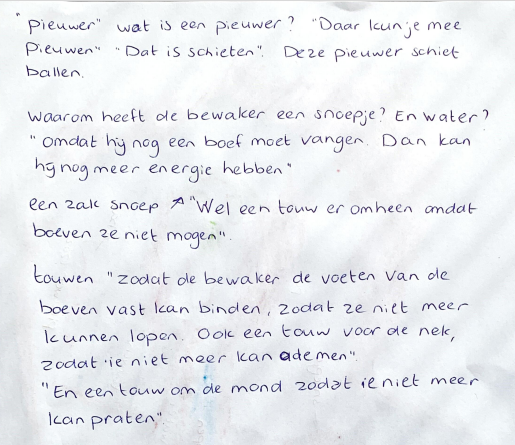 "Pieuwer" wat is een pieuwer? "Daar kun je mee
Pieuwen" "Dat is schieten". Deze pieuwer schiet
ballen.
Waarom heeft de bewaker een snoepje? En water?
"omdat hij nog een boef moet vangen. Dan kan
hij nog meer energie hebben"
een zak snoep ↗ "Wel een touw er omheen omdat
boeven ze niet mogen".
touwen "zodat de bewaker de voeten van de
boeven vast kan binden, zodat ze niet meer
kunnen lopen. Ook een touw voor de nek,
zodat ie niet meer kan ademen"
"En een touw om de mond zodat ie niet meer
kan praten"